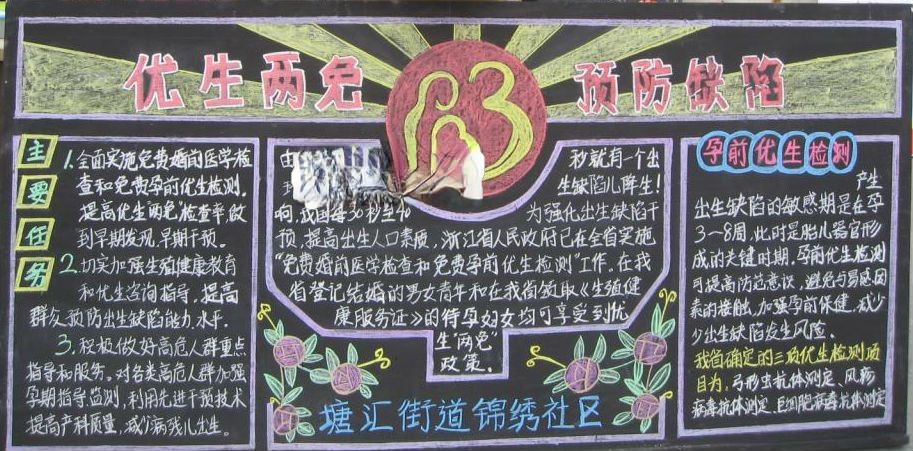 优生两免 预防缺陷
主要任务
1.全面实施免费婚前医学检
查和免费孕前优生检测,
提高优生"两免"检查率,做
到早期发现,早期干预。
2.切实加强生殖健康教育
和优生咨询指导,提高
群众预防出生缺陷能力、水平.
3.积极做好高危人群重点
指导和服务。对各类高危人群加强
孕期指导、监测,利用先进干预技术
提高产科质量,减少病残儿出生。
由
秒就有一个出
生缺陷儿降生!
响,我国每30秒至40
为强化出生缺陷干
预,提高出生人口素质,浙江省人民政府已在全省实施
"免费婚前医学检查和免费孕前优生检测"工作。在我
省登记结婚的男女青年和在我省领取《生殖健
康服务证》的待孕妇女均可享受到优
生"两免"
政策.
塘汇街道锦绣社区
孕前优生检测
产生
出生缺陷的敏感期是在孕
3-8周,此时是胎儿器官形
成的关键时期,孕前优生检测
可提高防范意识,避免与易感因
素的接触,加强孕前保健,减少
出生缺陷发生风险.
我省确定的三项优生检测项
目为:弓形虫抗体测定、风疹
病毒抗体测定、巨细胞病毒抗体测定